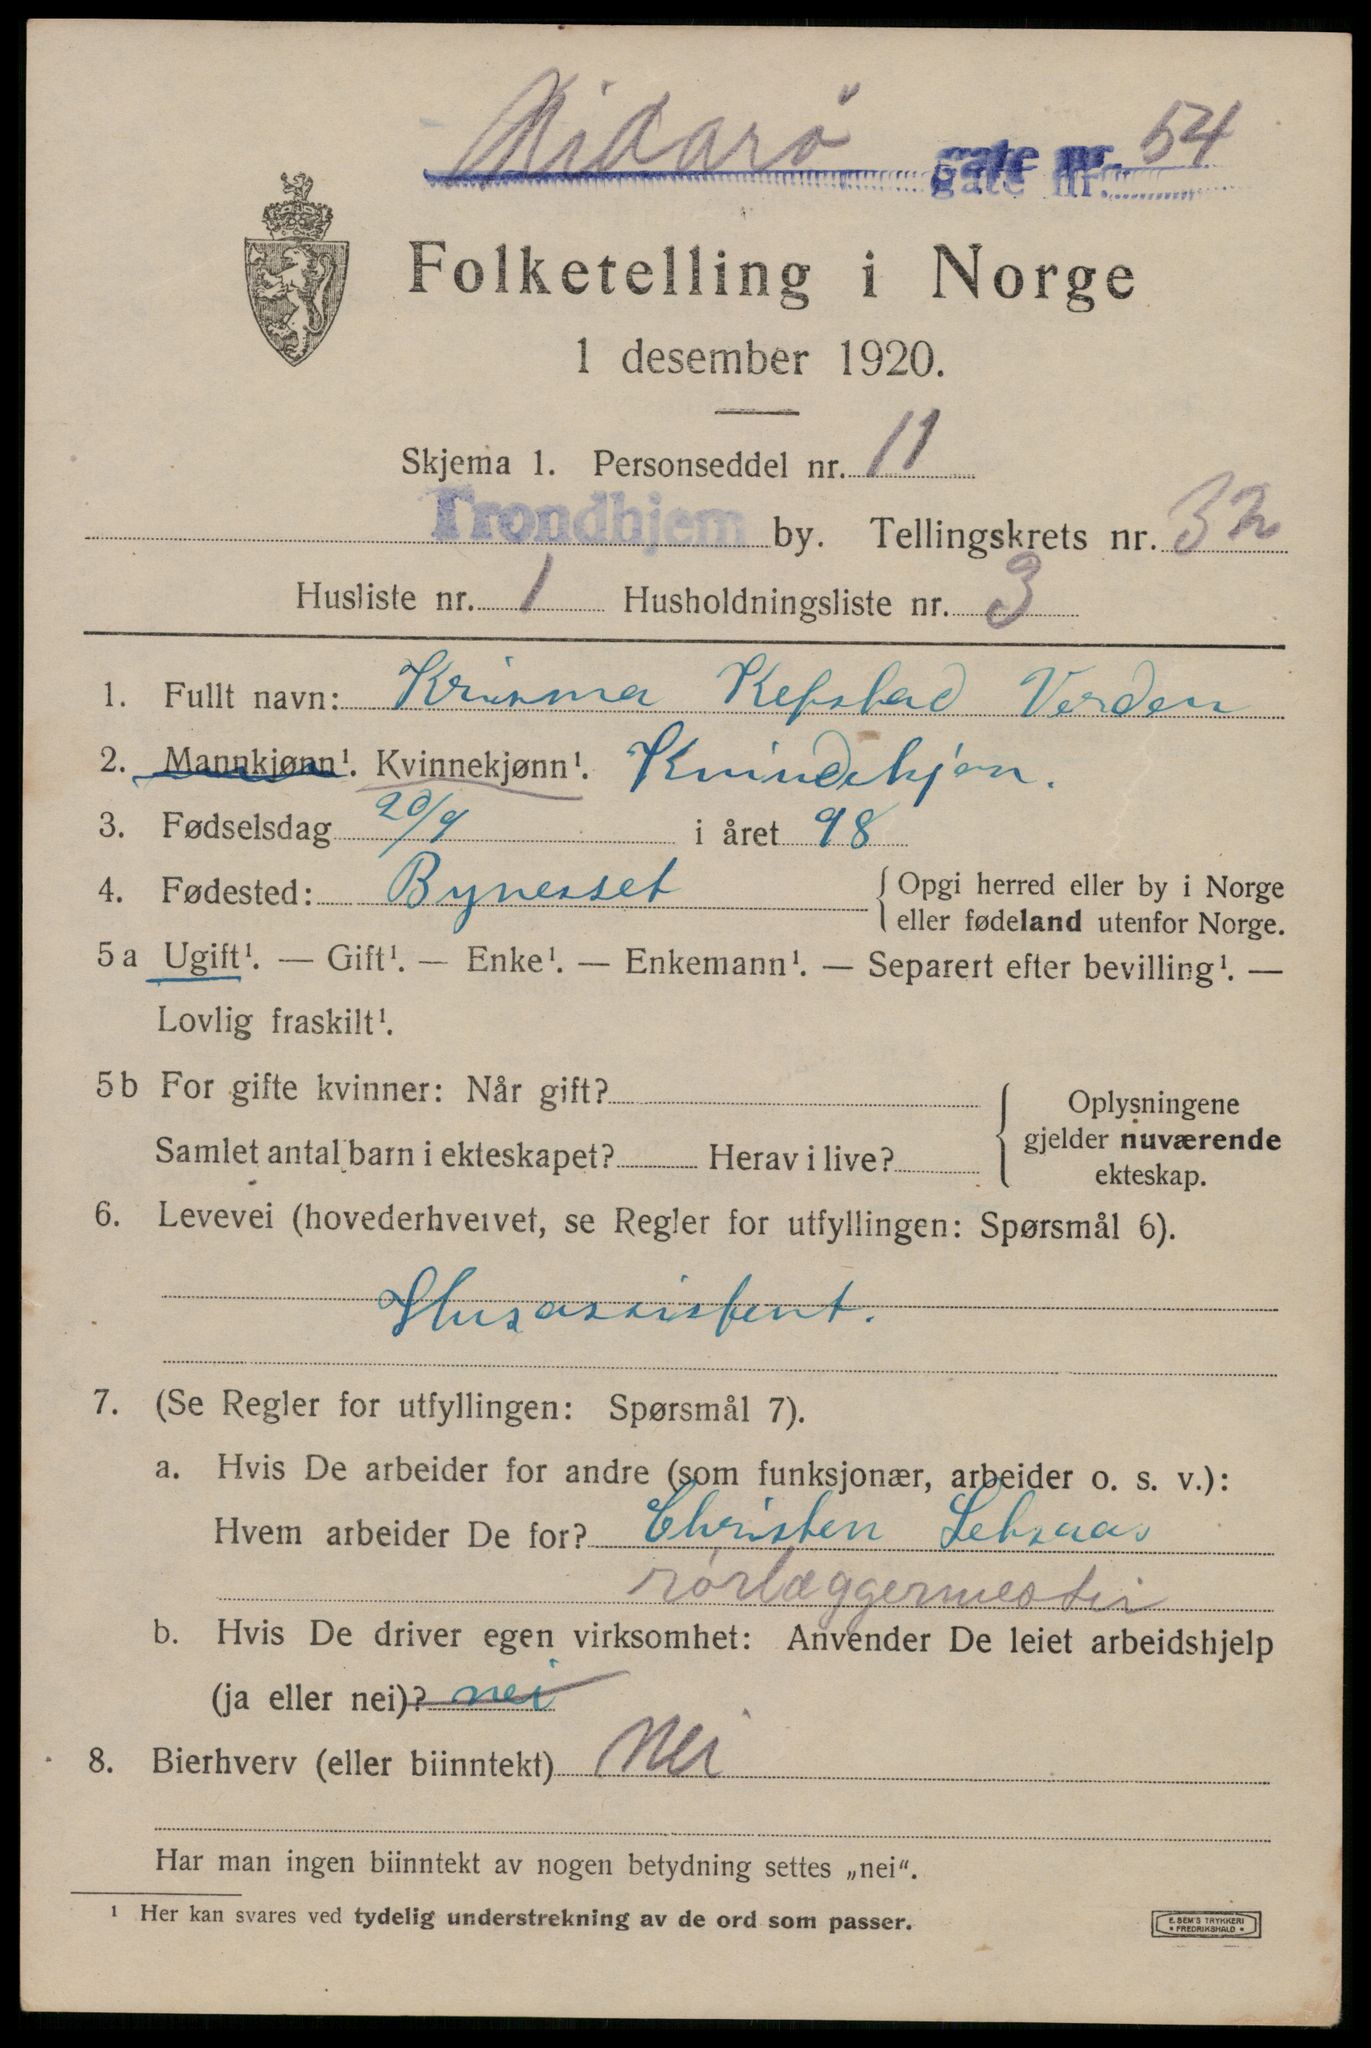 Nidarö gate nr. 54
Folketelling i Norge
1 desember 1920.
Skjema 1. Personseddel nr. 11
Trondhjem by. Tellingskrets nr. 32
Husliste nr. 1 Husholdningsliste nr. 3
1. Fullt navn: Verden
2. Mannkjønn¹. Kvinnekjønn¹. Kvindekjøn.
3. Fødselsdag 20/9 i året 98
4. Fødested: Bynesset { Opgi herred eller by i Norge
eller fødeland utenfor Norge.
5 a Ugift¹. — Gift¹. — Enke¹. — Enkemann¹. — Separert efter bevilling¹. —
Lovlig fraskilt¹.
5 b For gifte kvinner: Når gift?
Samlet antal barn i ekteskapet? Herav i live?
{ Oplysningene
gjelder nuværende
ekteskap.
6. Levevei (hovederhvervet, se Regler for utfyllingen: Spørsmål 6).
Husassistent.
7. (Se Regler for utfyllingen: Spørsmål 7).
a. Hvis De arbeider for andre (som funksjonær, arbeider o. s. v.):
Hvem arbeider De for? Christen
rörlæggermester
b. Hvis De driver egen virksomhet: Anvender De leiet arbeidshjelp
(ja eller nei)? nei
8. Bierhverv (eller biinntekt) Nei
Har man ingen biinntekt av nogen betydning settes „nei“.
¹ Her kan svares ved tydelig understrekning av de ord som passer.
E. SEM'S TRYKKERI
• FREDRIKSHALD •